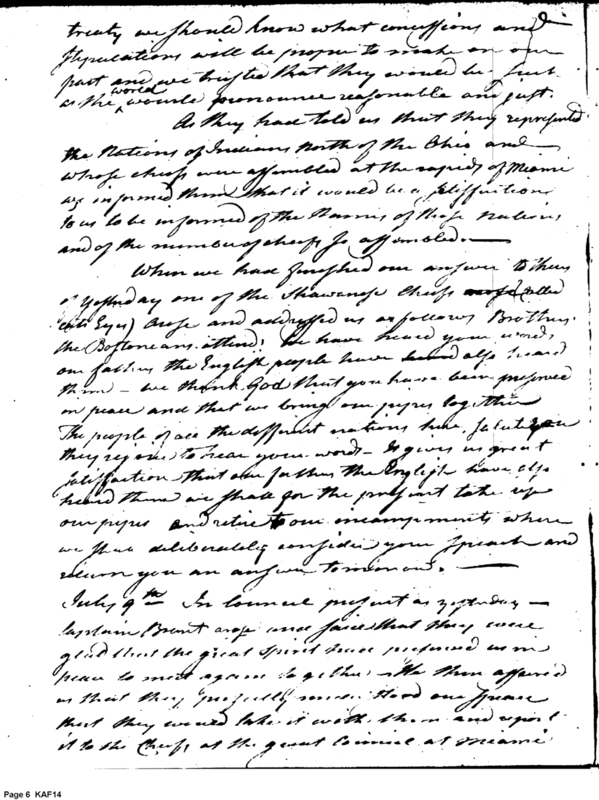 treaty we should know what concessions and
stipulations will be proper to make on our
part and we trusted that they would be such
as the world would pronounce reasonable and just.
As they had told us that they represented
the Nations of Indians North of the Ohio and
whose chiefs were assembled at the rapids of Miami
we informed them that it would be a satisfaction
to us to be informed of the Names of those nations
and of the number of chiefs so assembled.
When we had finished our answer to theirs
of yesterday one of the Shawanose Chiefs called
Cats Eyes) arose and addressed us as follows Brothers
the Bostoneans attend! We have heard your words
our fathers the English people have also heard
them – we thank God that you have been preserved
in peace and that we bring our pipes together
The people of all the different nations here salute you
they rejoice to hear your words – It gives us great
satisfaction that our fathers the English have also
heard them we shall for the present take up
our pipes and retire to our incampments where
we shall deliberately consider your Speech and
return you an answer tomorrow. —
July 9th In Council present as yesterday —
Captain Brant arose and said that they were
glad that the great spirit had preserved us in
peace to meet again together – He then assured
us that they perfectly understood our Speech
that they would take it with them and report
it to the Chiefs at the great Council at Miami
Page 6 KAF14